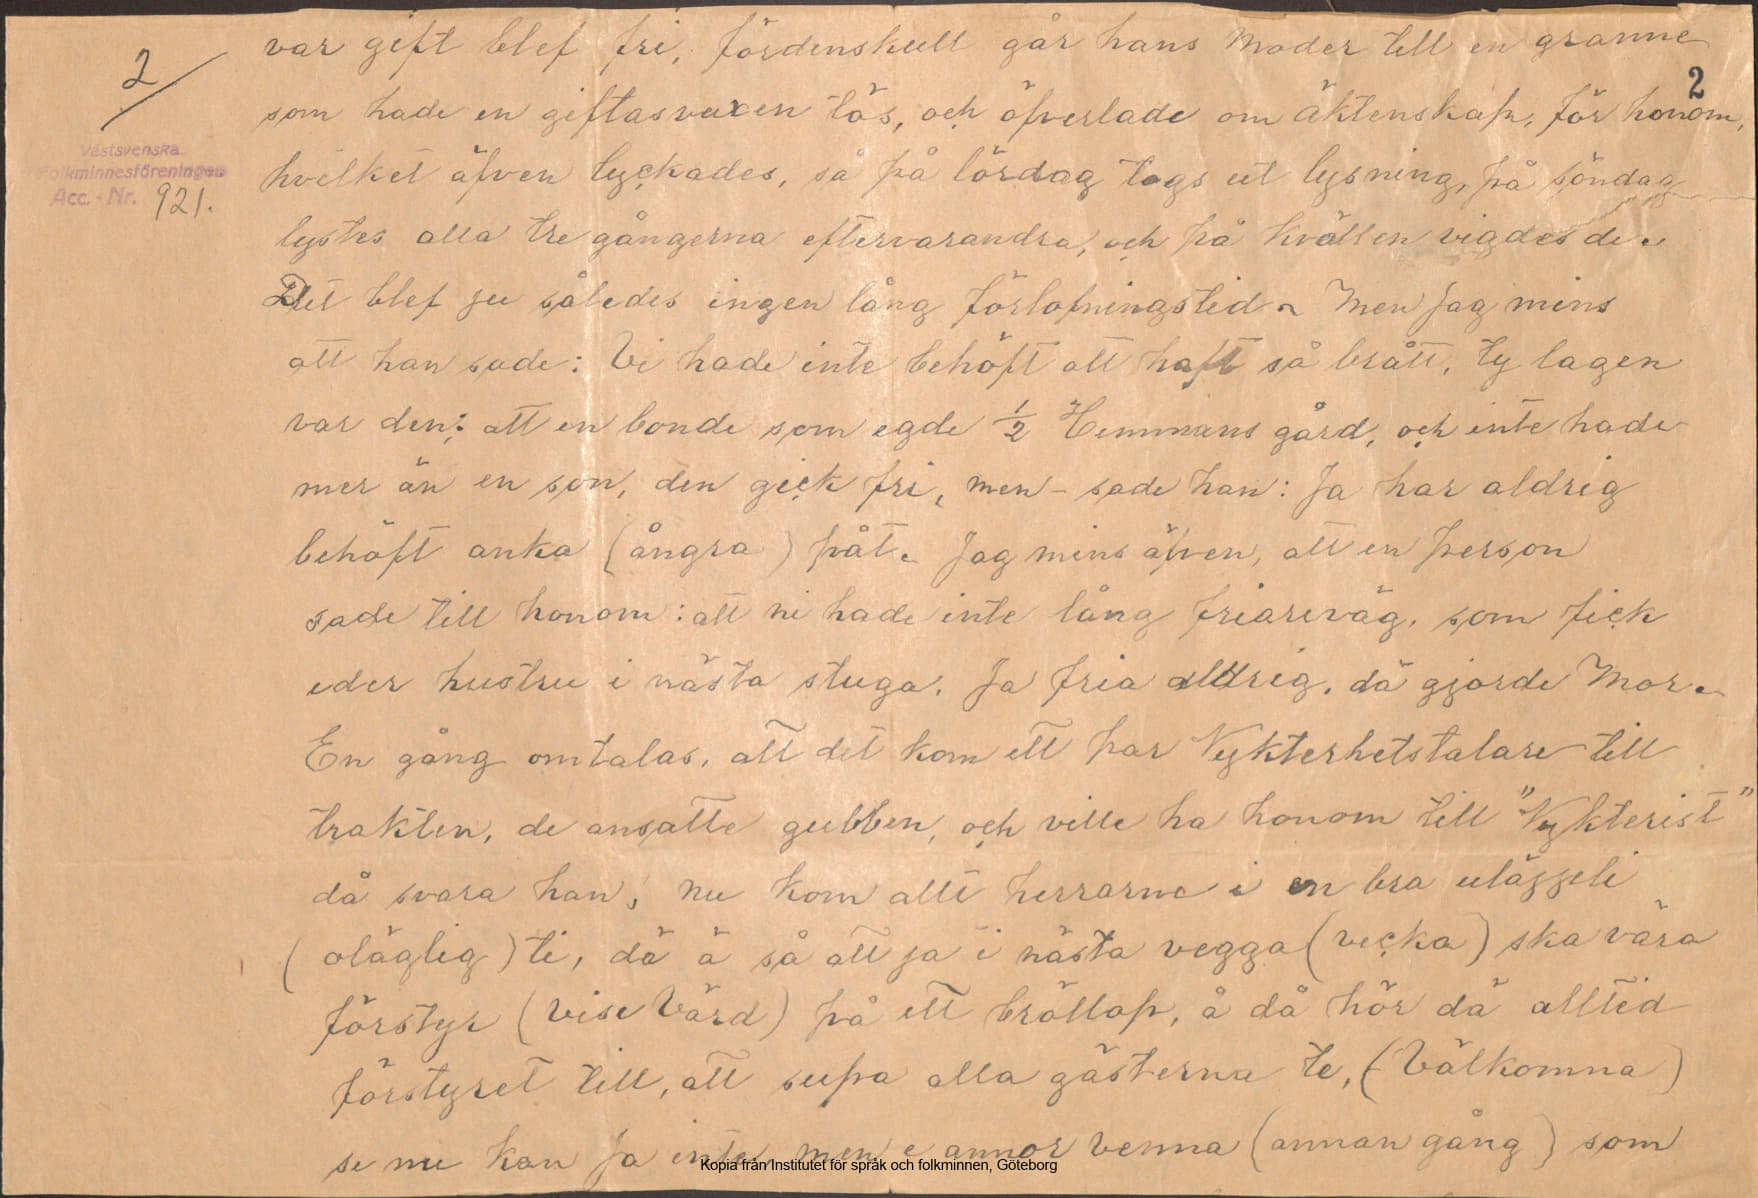 2
2
Västsvenska
Folkminnesföreningen
Acc. - Nr. 921.
var gift blef fri, fördenskull går hans Moder till en granne
som hade en giftasvuxen tös, och öfverlade om äktenskap, för honom,
hvilket äfven lyckades, så på lördag togs ut lysning, på söndag
lystes alla tre gångerna eftervarandra, och på kvällen vigdes de.
Det blef ju således ingen lång förlofningstid. Men Jag mins
att han sade: Vi hade inte behöft att haft så brått, ty lagen
var den; att en bonde som egde 1/2 Hemmans gård, och inte hade
mer än en son, den gick fri, men - sade han: Ja har aldrig
behöft anka (ångra) påt. Jag mins äfven, att en person
sade till honom: att ni hade inte lång friareväg, som fick
eder hustru i nästa stuga. Ja fria aldrig, dä gjorde Mor.
En gång omtalas, att det kom ett par Nykterhetstalare till
trakten, de ansatte gubben, och ville ha honom till "Nykterist"
då svara han, nu kom allt herrarne i en bra uläggeli
(oläglig) ti, dä ä så att ja i nästa vegga (vecka) ska vära
förstyr (vise Värd) på ett bröllop, å då hör dä alltid
förstyret till, att supa alla gästerna te, (Välkomna)
se nu kan Ja inte, men e annor venna (annan gång) som
Kopia från Institutet för språk och folkminnen, Göteborg